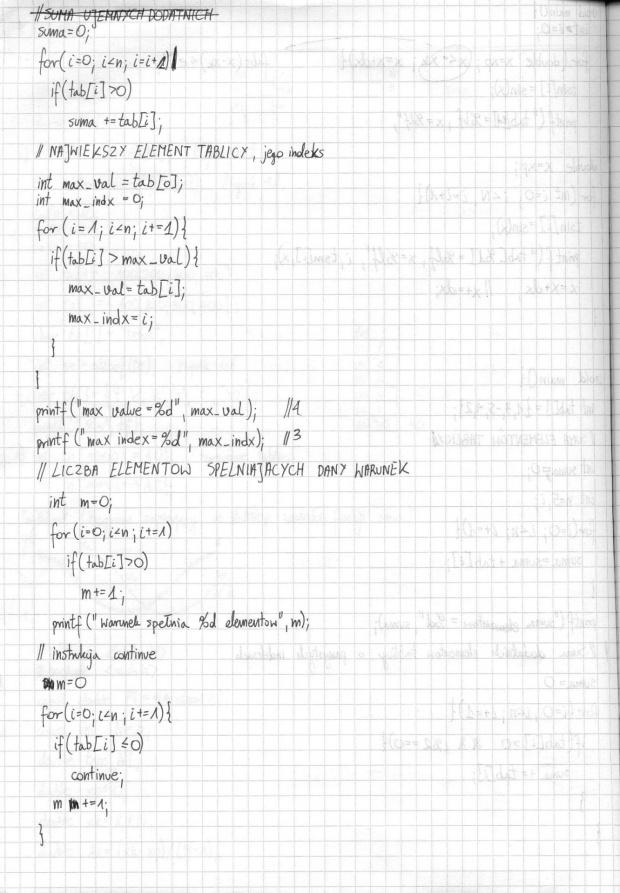 // SUMA UJEMNYCH DODATNICH
suma=0;
for(i=0; i<n; i=i+1)
if(tab[i]>0)
suma +=tab[i];
// NAJWIEKSZY ELEMENT TABLICY, jego indeks
int max_val =tab[0];
int max_indx = 0;
for(i=1; i<n; i+=1){
if(tab[i]>max_val){
max_val=tab[i];
max_indx=i;
}
}
printf("max value=%d", max_val); //4
printf("max index=%d", max_indx); //3
// LICZBA ELEMENTOW SPELNIAJACYCH DANY WARUNEK
int m=0;
for(i=0; i<n; i+=1)
if(tab[i]>0)
m+=1;
printf("warunek spełnia %d elementow", m);
// instrukcja continue
m=0
for(i=0; i<n; i+=1){
if(tab[i] ≤0)
continue;
m +=1;
}